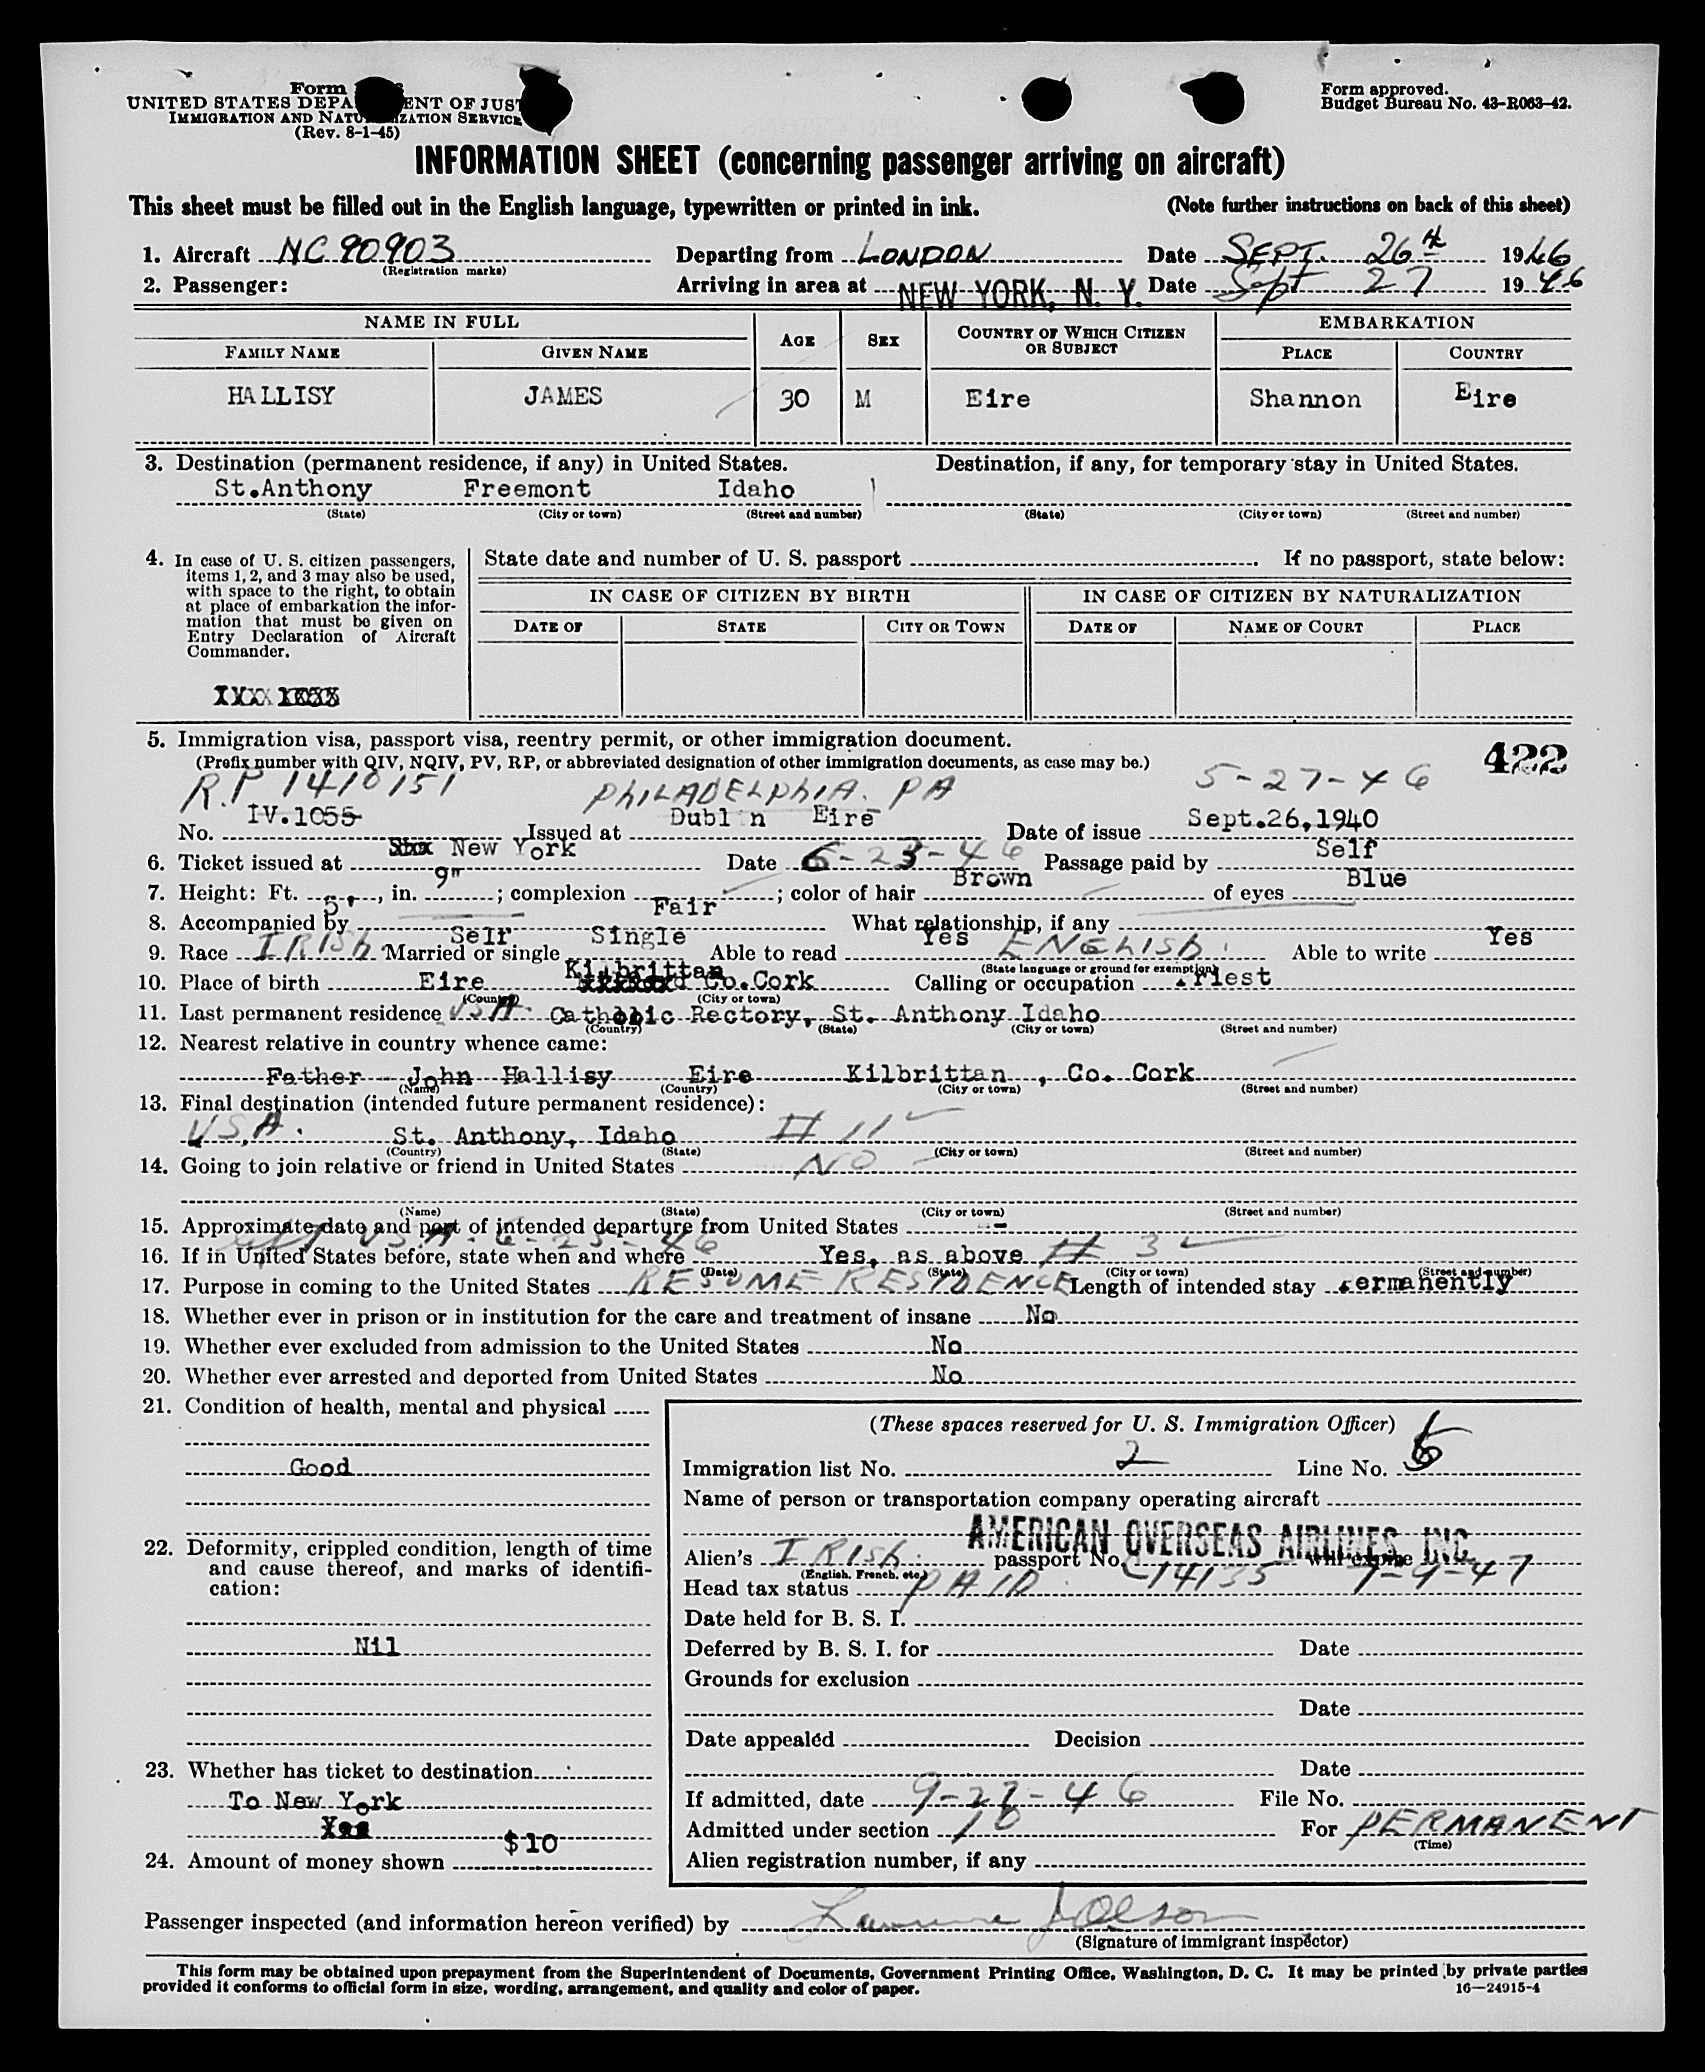 Form
UNITED STATES DEPA ENT OF JUS
IMMIGRATION AND NATU IZATION SERVICE
(Rev. 8-1-45)
Form approved.
Budget Bureau No. 43-R063-42.
INFORMATION SHEET (concerning passenger arriving on aircraft)
This sheet must be filled out in the English language, typewritten or printed in ink. (Note further instructions on back of this sheet)
1. Aircraft NC 90903 Departing from LONDON Date SEPT. 26th 1946
(Registration marks)
2. Passenger: Arriving in area at NEW YORK, N. Y. Date Sept 27 1946
NAME IN FULL AGE SEX COUNTRY OF WHICH CITIZEN OR SUBJECT EMBARKATION
FAMILY NAME GIVEN NAME PLACE COUNTRY
HALLISY JAMES 30 M Eire Shannon Eire
3. Destination (permanent residence, if any) in United States. Destination, if any, for temporary stay in United States.
St.Anthony Freemont Idaho
(State) (City or town) (Street and number) (State) (City or town) (Street and number)
4. In case of U. S. citizen passengers, items 1, 2, and 3 may also be used, with space to the right, to obtain at place of embarkation the information that must be given on Entry Declaration of Aircraft Commander.
State date and number of U. S. passport If no passport, state below:
IN CASE OF CITIZEN BY BIRTH IN CASE OF CITIZEN BY NATURALIZATION
DATE OF STATE CITY OR TOWN DATE OF NAME OF COURT PLACE
5. Immigration visa, passport visa, reentry permit, or other immigration document. 422
(Prefix number with QIV, NQIV, PV, RP, or abbreviated designation of other immigration documents, as case may be.)
R.P 1410151 PHILADELPHIA. PA 5-27-46
No. IV.1055 Issued at Dublin Eire Date of issue Sept.26,1940
6. Ticket issued at New York Date 6-23-46 Passage paid by Self
7. Height: Ft. 5', in. 9" ; complexion Fair ; color of hair Brown of eyes Blue
8. Accompanied by Self What relationship, if any
9. Race IRISH. Married or single Single Able to read Yes ENGLISH. Able to write Yes
(State language or ground for exemption)
10. Place of birth Eire Kilbrittan Co.Cork Calling or occupation Priest
(Country) (City or town)
11. Last permanent residence USA. Catholic Rectory, St. Anthony Idaho
(Country) (State) (City or town) (Street and number)
12. Nearest relative in country whence came:
Father - John Hallisy Eire Kilbrittan , Co. Cork
(Name) (Country) (City or town) (Street and number)
13. Final destination (intended future permanent residence):
U.S.A. St. Anthony, Idaho # 11
(Country) (State) (City or town) (Street and number)
14. Going to join relative or friend in United States NO
(Name) (State) (City or town) (Street and number)
15. Approximate date and port of intended departure from United States --
left USA. 6-23-46
16. If in United States before, state when and where Yes, as above # 3
(Date) (State) (City or town) (Street and number)
17. Purpose in coming to the United States RESUME RESIDENCE Length of intended stay Permanently
18. Whether ever in prison or in institution for the care and treatment of insane No
19. Whether ever excluded from admission to the United States No
20. Whether ever arrested and deported from United States No
21. Condition of health, mental and physical
Good
22. Deformity, crippled condition, length of time and cause thereof, and marks of identification:
Nil
23. Whether has ticket to destination
To New York
Yes
24. Amount of money shown $10
(These spaces reserved for U. S. Immigration Officer)
Immigration list No. 2 Line No. 5
Name of person or transportation company operating aircraft
AMERICAN OVERSEAS AIRLINES, INC.
Alien's IRISH. passport No. C14135 will expire 7-9-47
(English, French, etc.)
Head tax status PAID.
Date held for B. S. I.
Deferred by B. S. I. for Date
Grounds for exclusion
Date
Date appealed Decision
Date
If admitted, date 9-27-46 File No.
Admitted under section 10 For PERMANENT
(Time)
Alien registration number, if any
Passenger inspected (and information hereon verified) by Lawrence Jolson
(Signature of immigrant inspector)
This form may be obtained upon prepayment from the Superintendent of Documents, Government Printing Office, Washington, D. C. It may be printed by private parties
provided it conforms to official form in size, wording, arrangement, and quality and color of paper.
16—24915-4